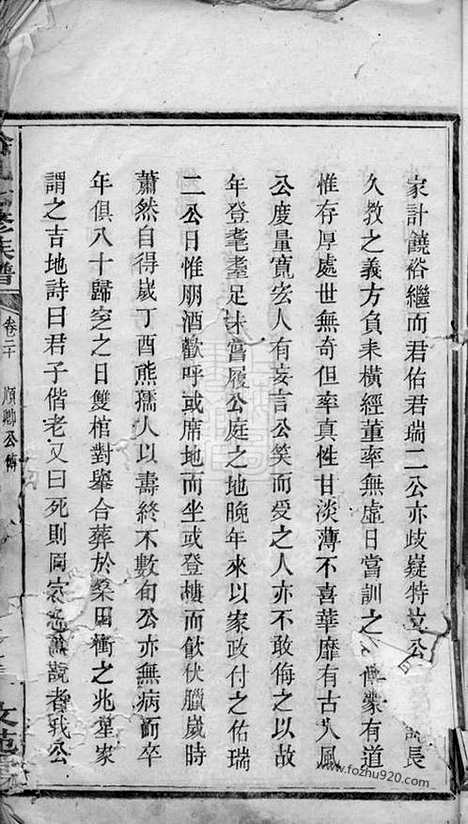 家計饒裕繼而君佑君瑞二公亦歧嶷特立公長
久教之義方負耒橫經董率無虛日嘗訓之有道
惟存厚處世無奇但率真性甘淡薄不喜華靡有古人風
公度量寬宏人有妄言公笑而受之人亦不敢侮之以故
年登耄耋足未嘗履公庭之地晚年來以家政付之佑瑞
二公日惟朋酒歡呼或席地而坐或登樓而飲伏臘歲時
蕭然自得歲丁酉熊孺人以壽終不數旬公亦無病而卒
年俱八十歸窆之日雙棺對舉合葬於桑田衝之兆堪家
謂之吉地詩曰君子偕老又曰死則同穴者公
修族譜
卷二十
順卿公傳
www.fozhu920.com